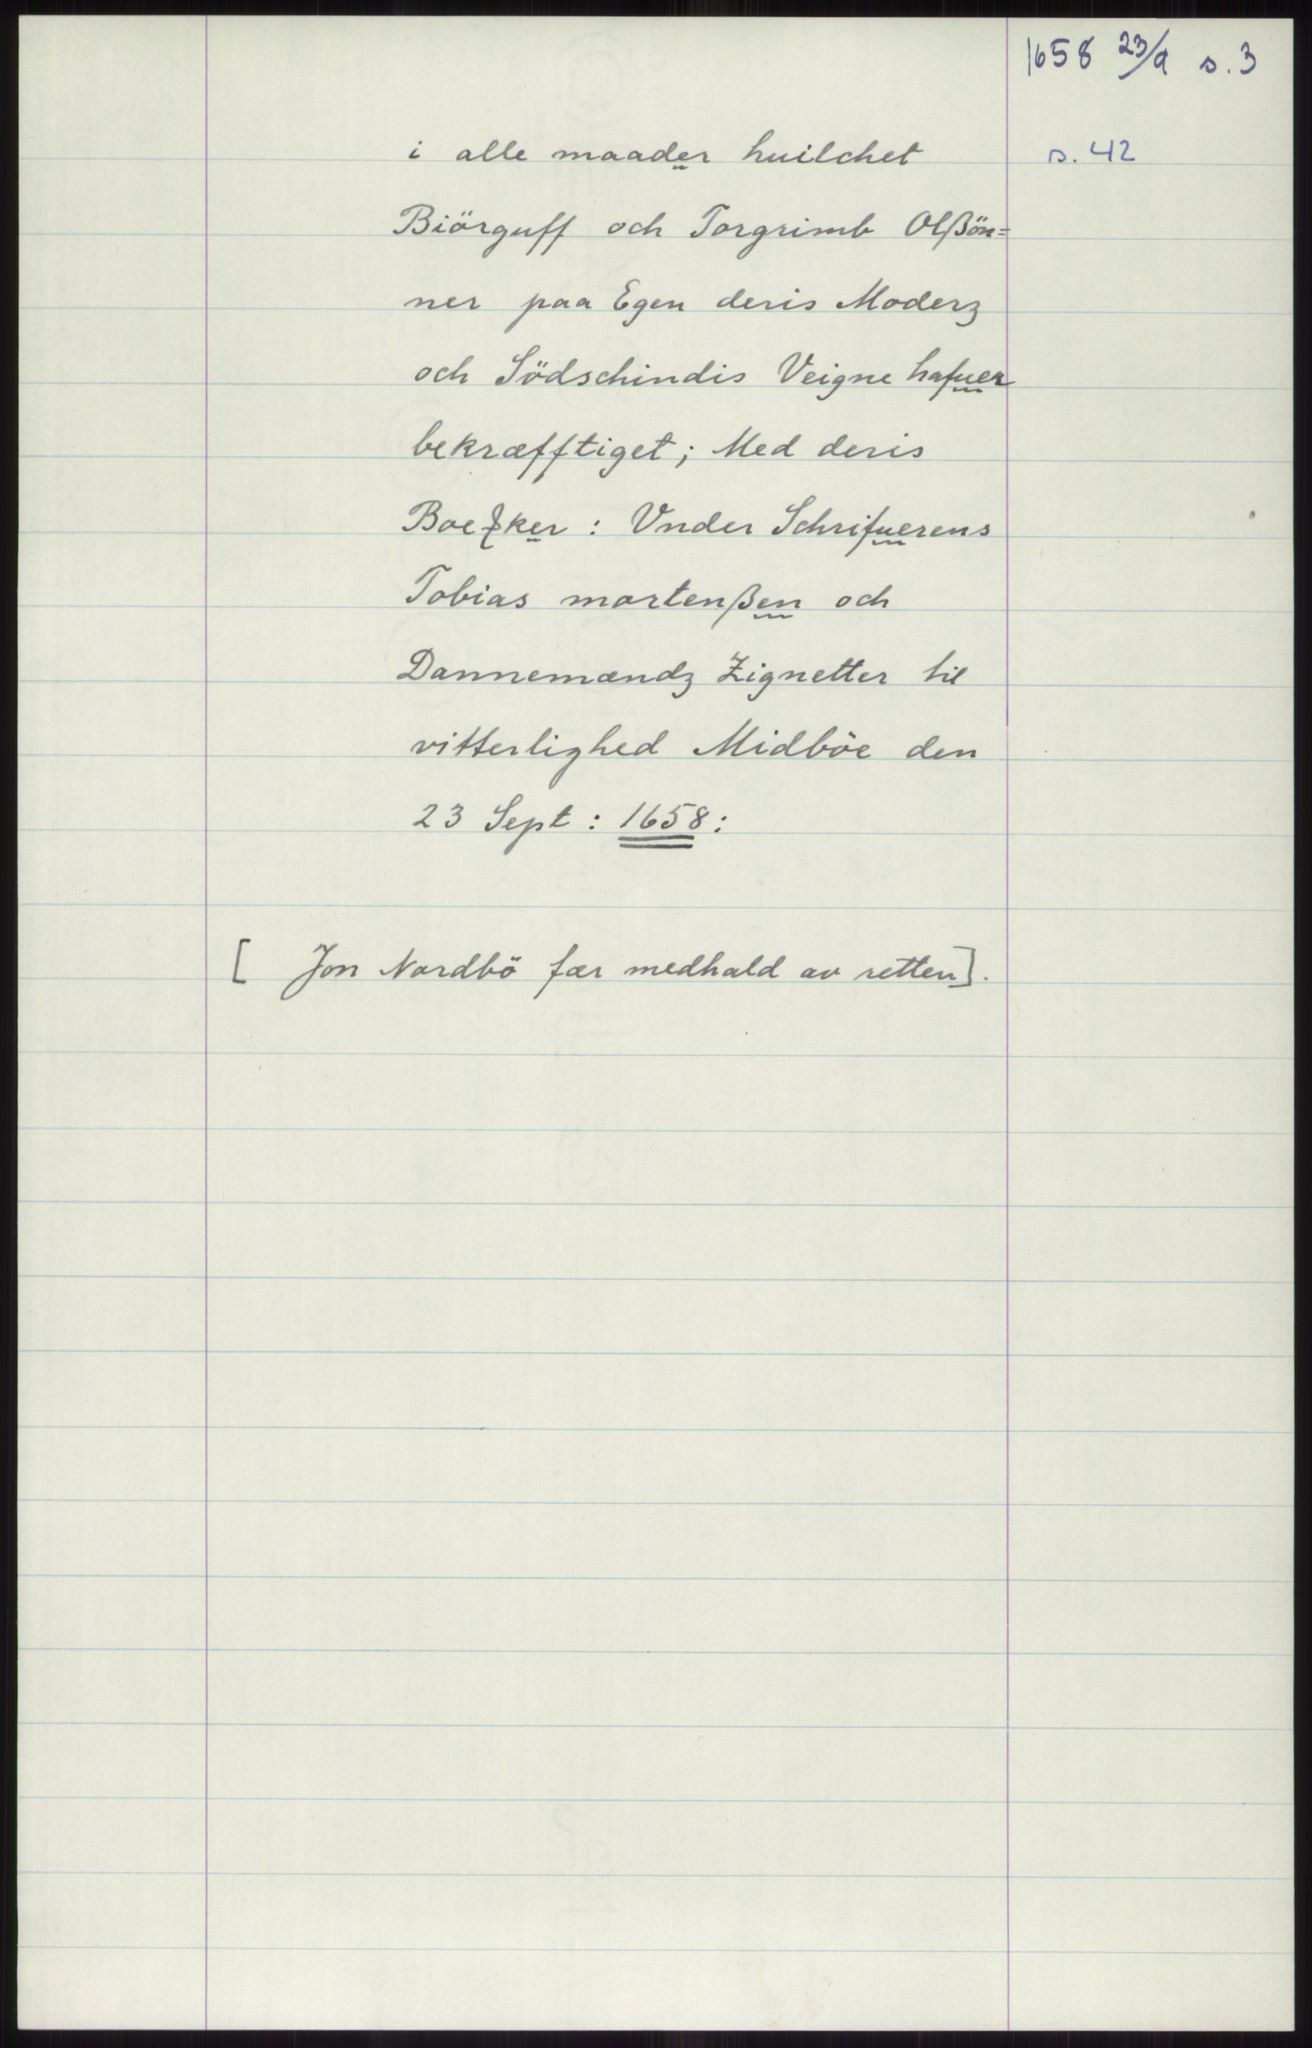 1658 23/9 s. 3
i alle maader huilchet s. 42
Biörguff och Torgrimb Olßön=
ner paa Egen deris Moderz
och Södschindis Veigne hafuer
bekræfftiget; Med deris
Vnder Schrifuerens
Tobias mortenßen och
Dannemændz Zignetter til
vitterlighed Midböe den
23 Sept: 1658:
[ Jon Nordbö fær medhald av retten].